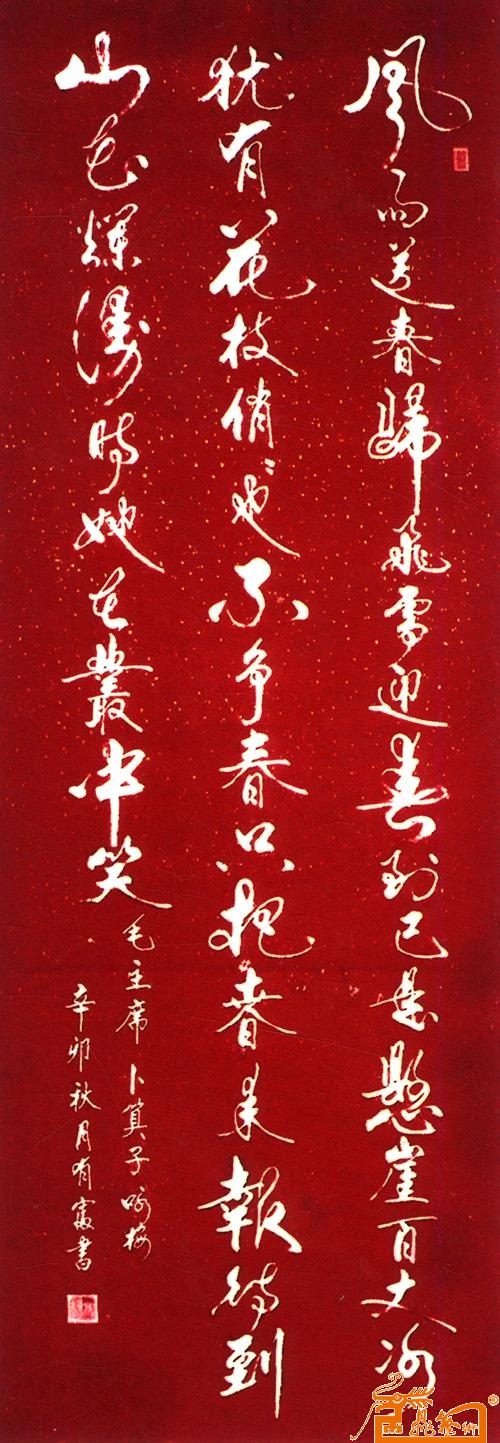 風雨送春歸飛雪迎春到已是懸崖百丈冰
犹有花枝俏俏也不争春只把春来報待到
山花爛漫時她在叢中笑
毛主席卜算子咏梅
辛卯秋月有富書